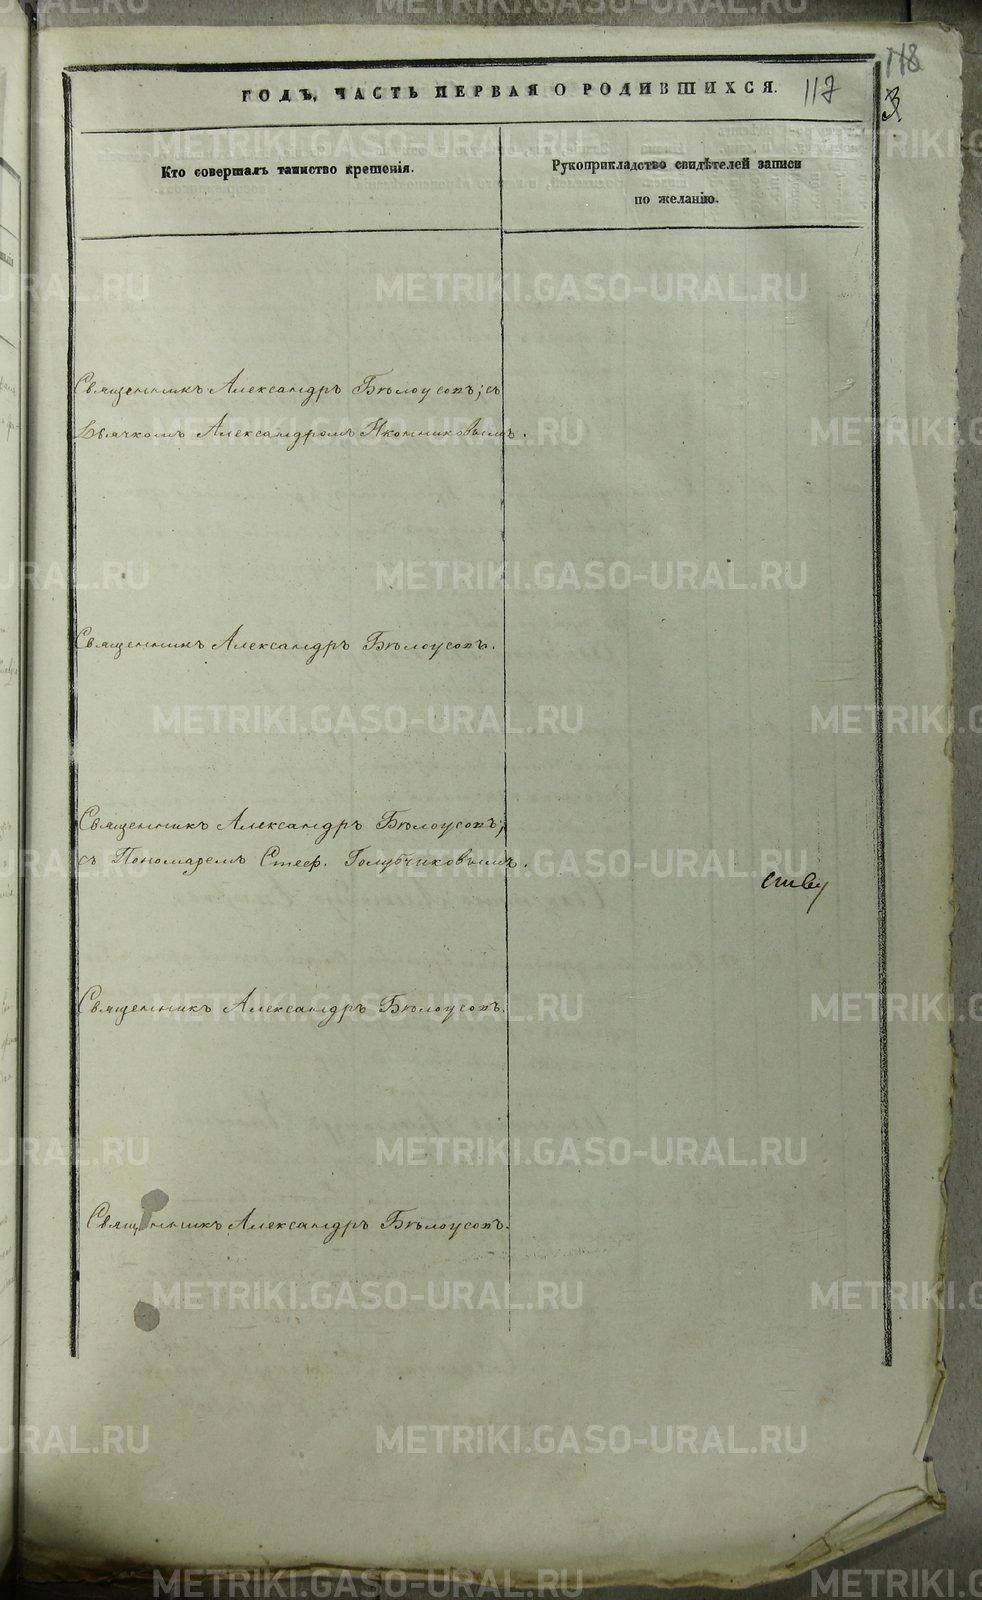 118
ГОДЪ, ЧАСТЬ ПЕРВАЯ О РОДИВШИХСЯ. 117
3
Кто совершалъ таинство крещенія.
Рукоприкладство свидѣтелей записи
по желанію.
Священникъ Александръ Бѣлоусовъ; съ
Дьячкомъ Александромъ Иконниковымъ.
Священникъ Александръ Бѣлоусовъ.
Священникъ Александръ Бѣлоусовъ;
съ Пономаремъ Стеф. Голубчиковымъ.
ству
Священникъ Александръ Бѣлоусовъ.
Священникъ Александръ Бѣлоусовъ.
METRIKI.GASO-URAL.RU